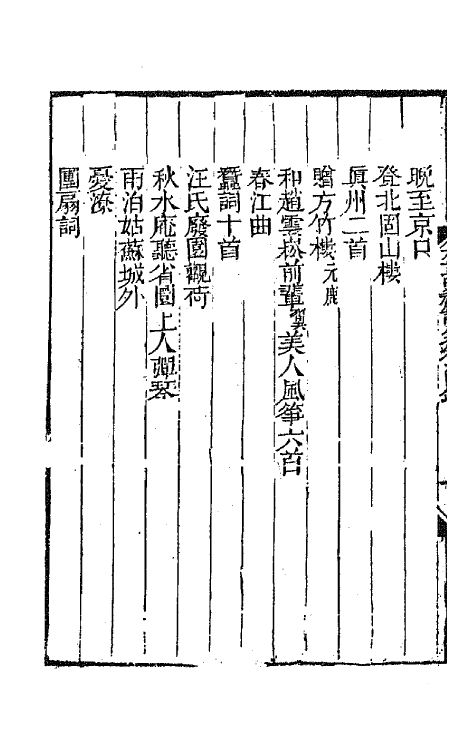 晩至京口
登北固山樓
眞州二首
贈方竹樓元鹿
和趙雲崧前輩翼美人風箏六首
春江曲
蠶詞十首
汪氏廢園觀荷
秋水庵聽省圓上人彈琴
雨泊姑蘇城外
憂潦
團扇詞